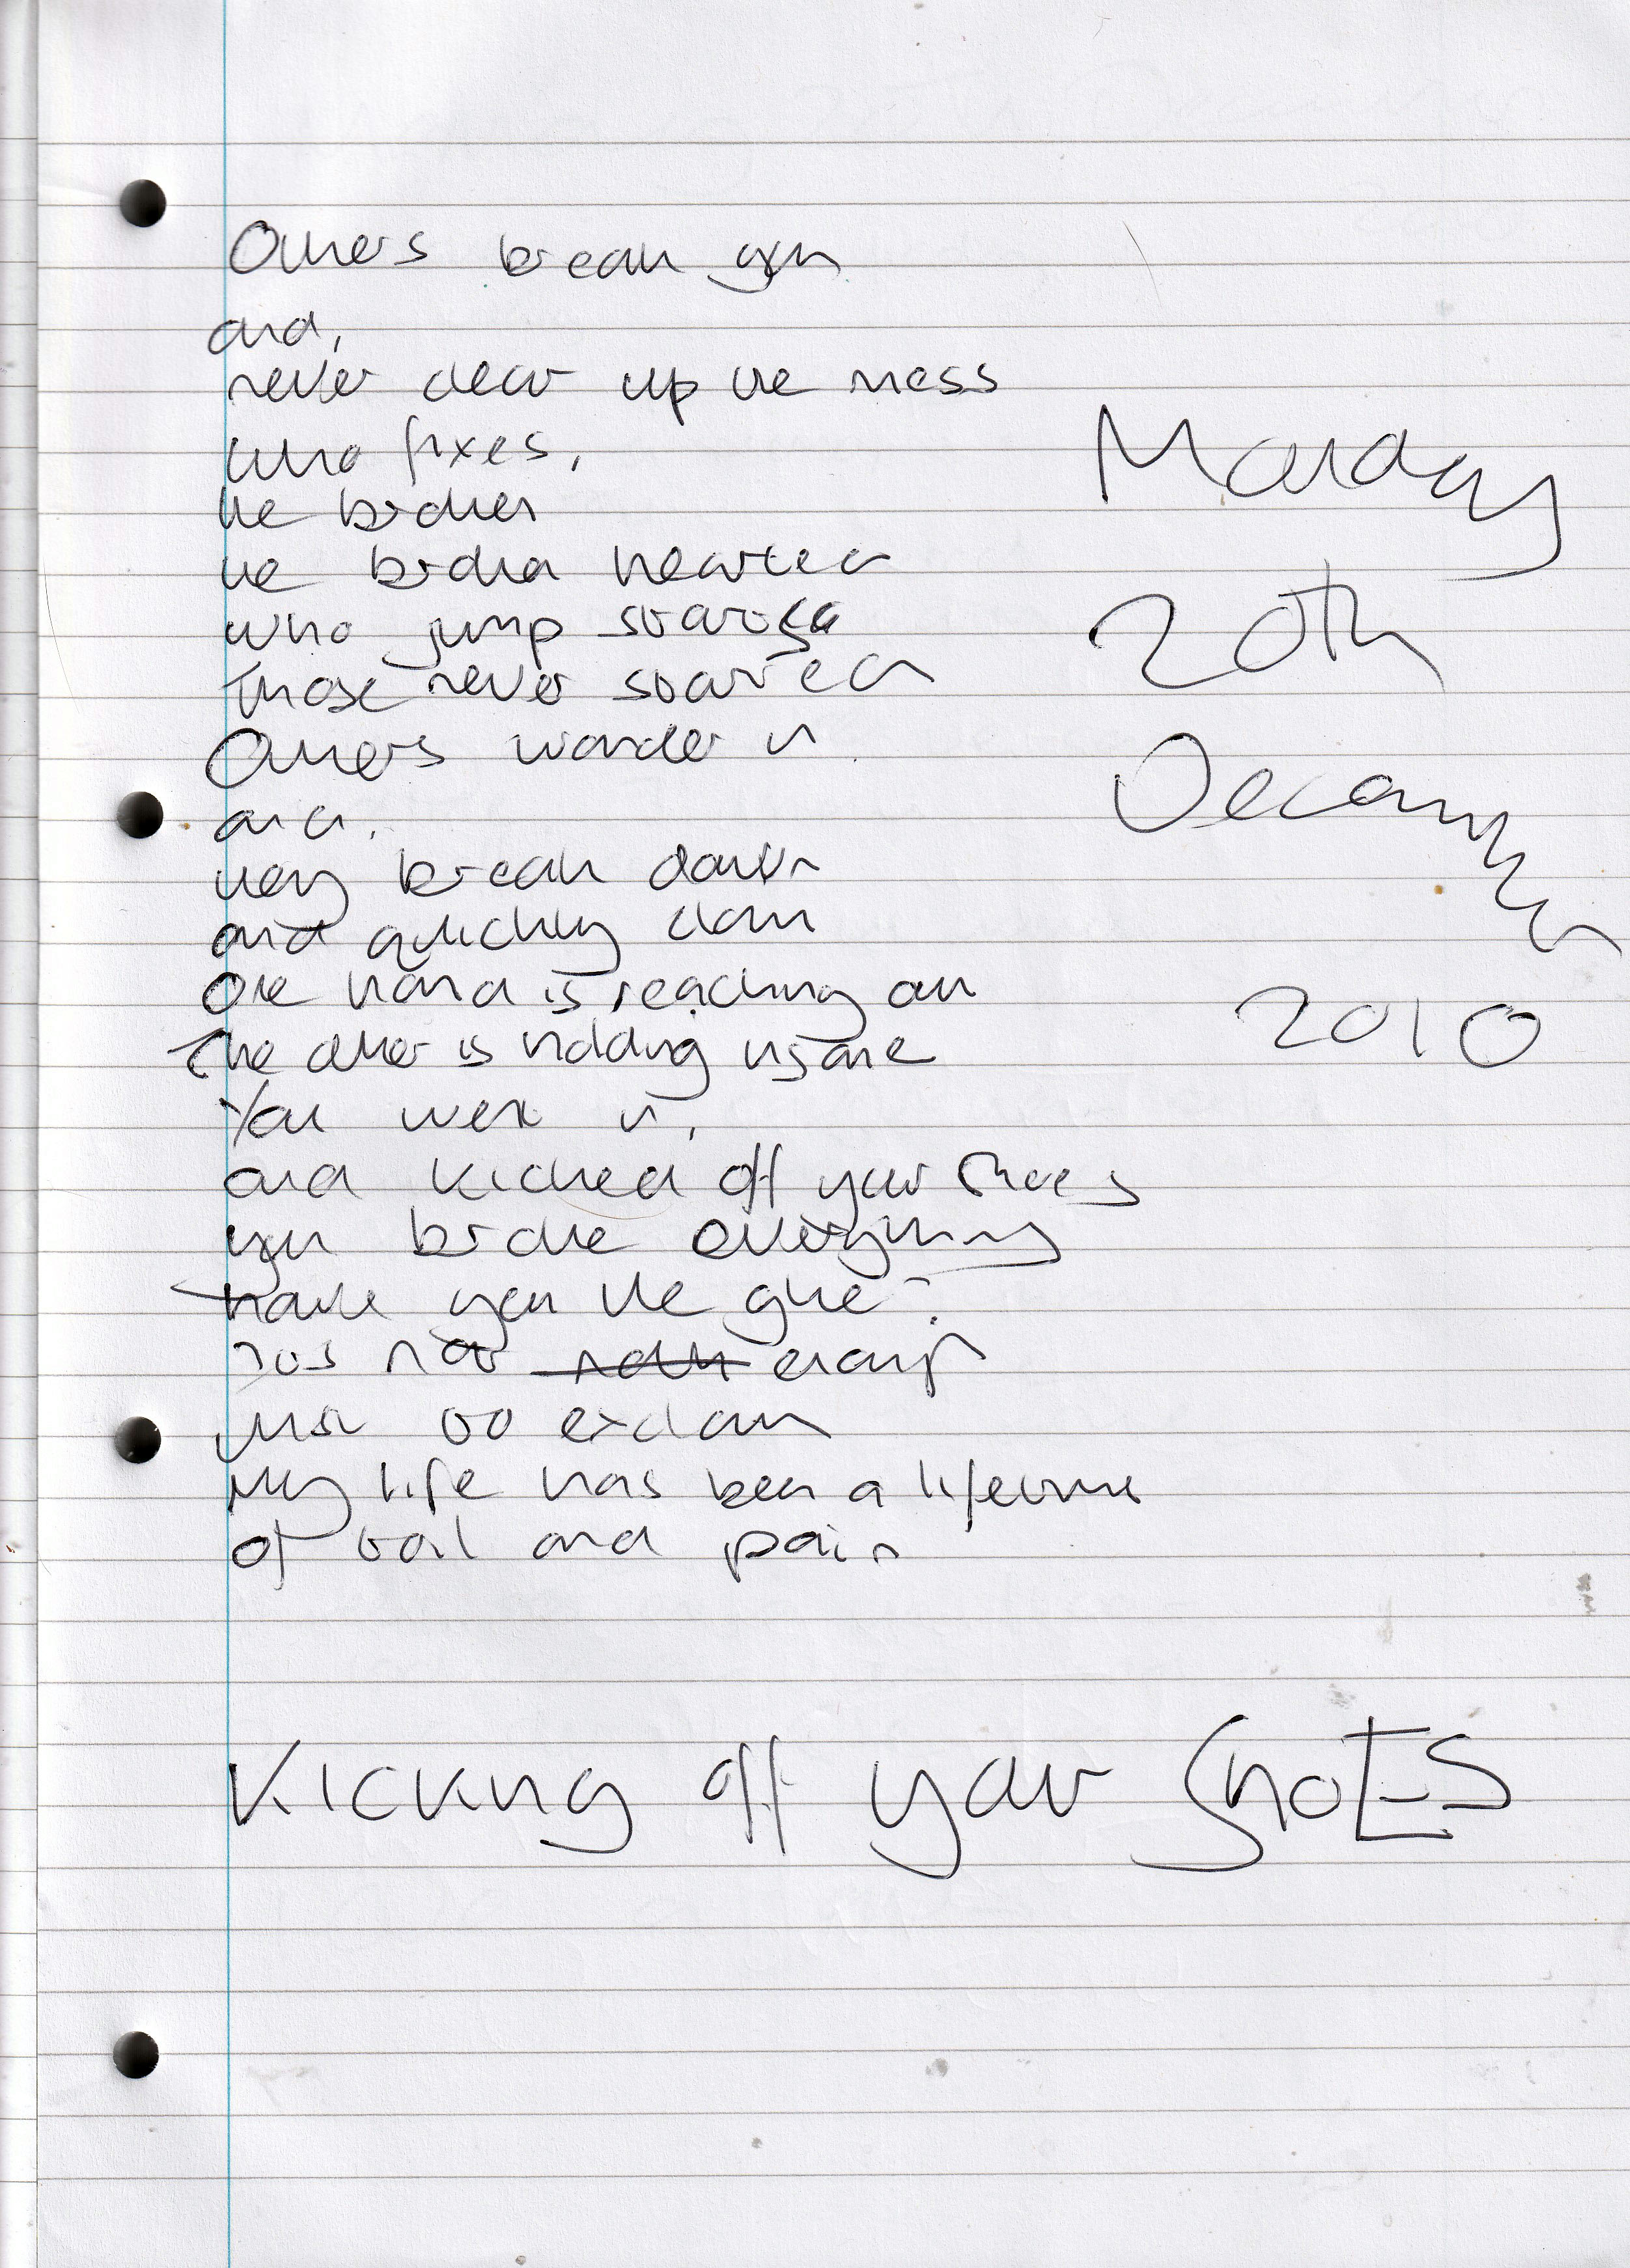 Others break you
and,
never clear up the mess
who fixes,
the broken
the broken hearted
who jump started
Those never started
Others wander in
and,
they break down
and quickly claim
One hand is reaching out
The other is hiding insane
You went in,
and kicked off your shoes
you broke everything
have you the glue?
Its not enough
just to exclaim
My life has been a lifetime
of toil and pain
Monday
20th
December
2010
Kicking off your ShoES